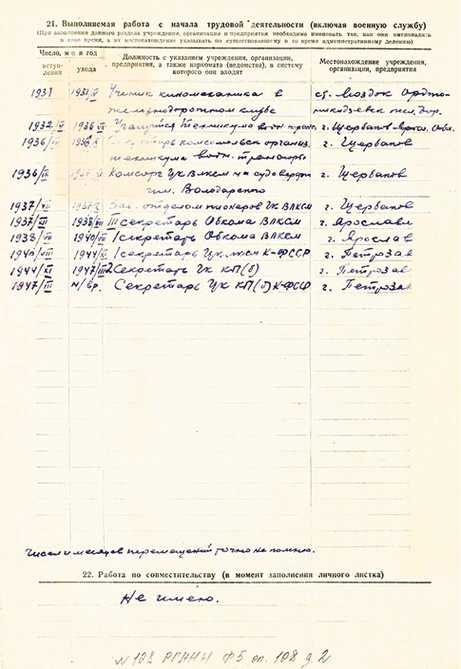 21. Выполняемая работа с начала трудовой деятельности (включая военную службу)
(При заполнении данного раздела учреждения, организации и предприятия необходимо именовать так, как они назывались
в свое время, а их местонахождение указывать по существовавшему в то время административному делению)
Число, м-ц и год
вступления
ухода
Должность с указанием учреждения, организации,
предприятия, а также наркомата (ведомства), в систему
которого они входят
Местонахождение учреждения,
организации, предприятия
1931 Ученик киномеханика в ст. Моздок Орджо-
железнодорожном клубе никидзевск. жел. дор.
1932/IX 1936/VI Учащийся техникума водн. трансп. г. Щербаков Яросл. обл.
1936/ комсомольск. организ. г. Щербаков
техникума водн. транспорта
1936/ комсорг Цк ВЛКСМ на судоверфи г. Щербаков
им. Володарского
1937/ Зав. отделом пионеров ГК ВЛКСМ г. Щербаков
1937/ 1938/ секретарь Обкома ВЛКСМ г. Ярославль
1938/ 1940/ I секретарь Обкома ВЛКСМ г. Ярослав
1940/ 1944/ I секретарь Цк ЛКСМ К-ФССР г. Петрозав
1944/ 1947/ 2 Секретарь Гк КП(б) г. Петрозав
1947/ н/вр. Секретарь Цк КП(б) К-ФССР г. Петрозав
Чисел и месяцев перемещений точно не помню.
22. Работа по совместительству (в момент заполнения личного листка)
Не имею.
РГАНИ Ф5 оп. 108 д 2